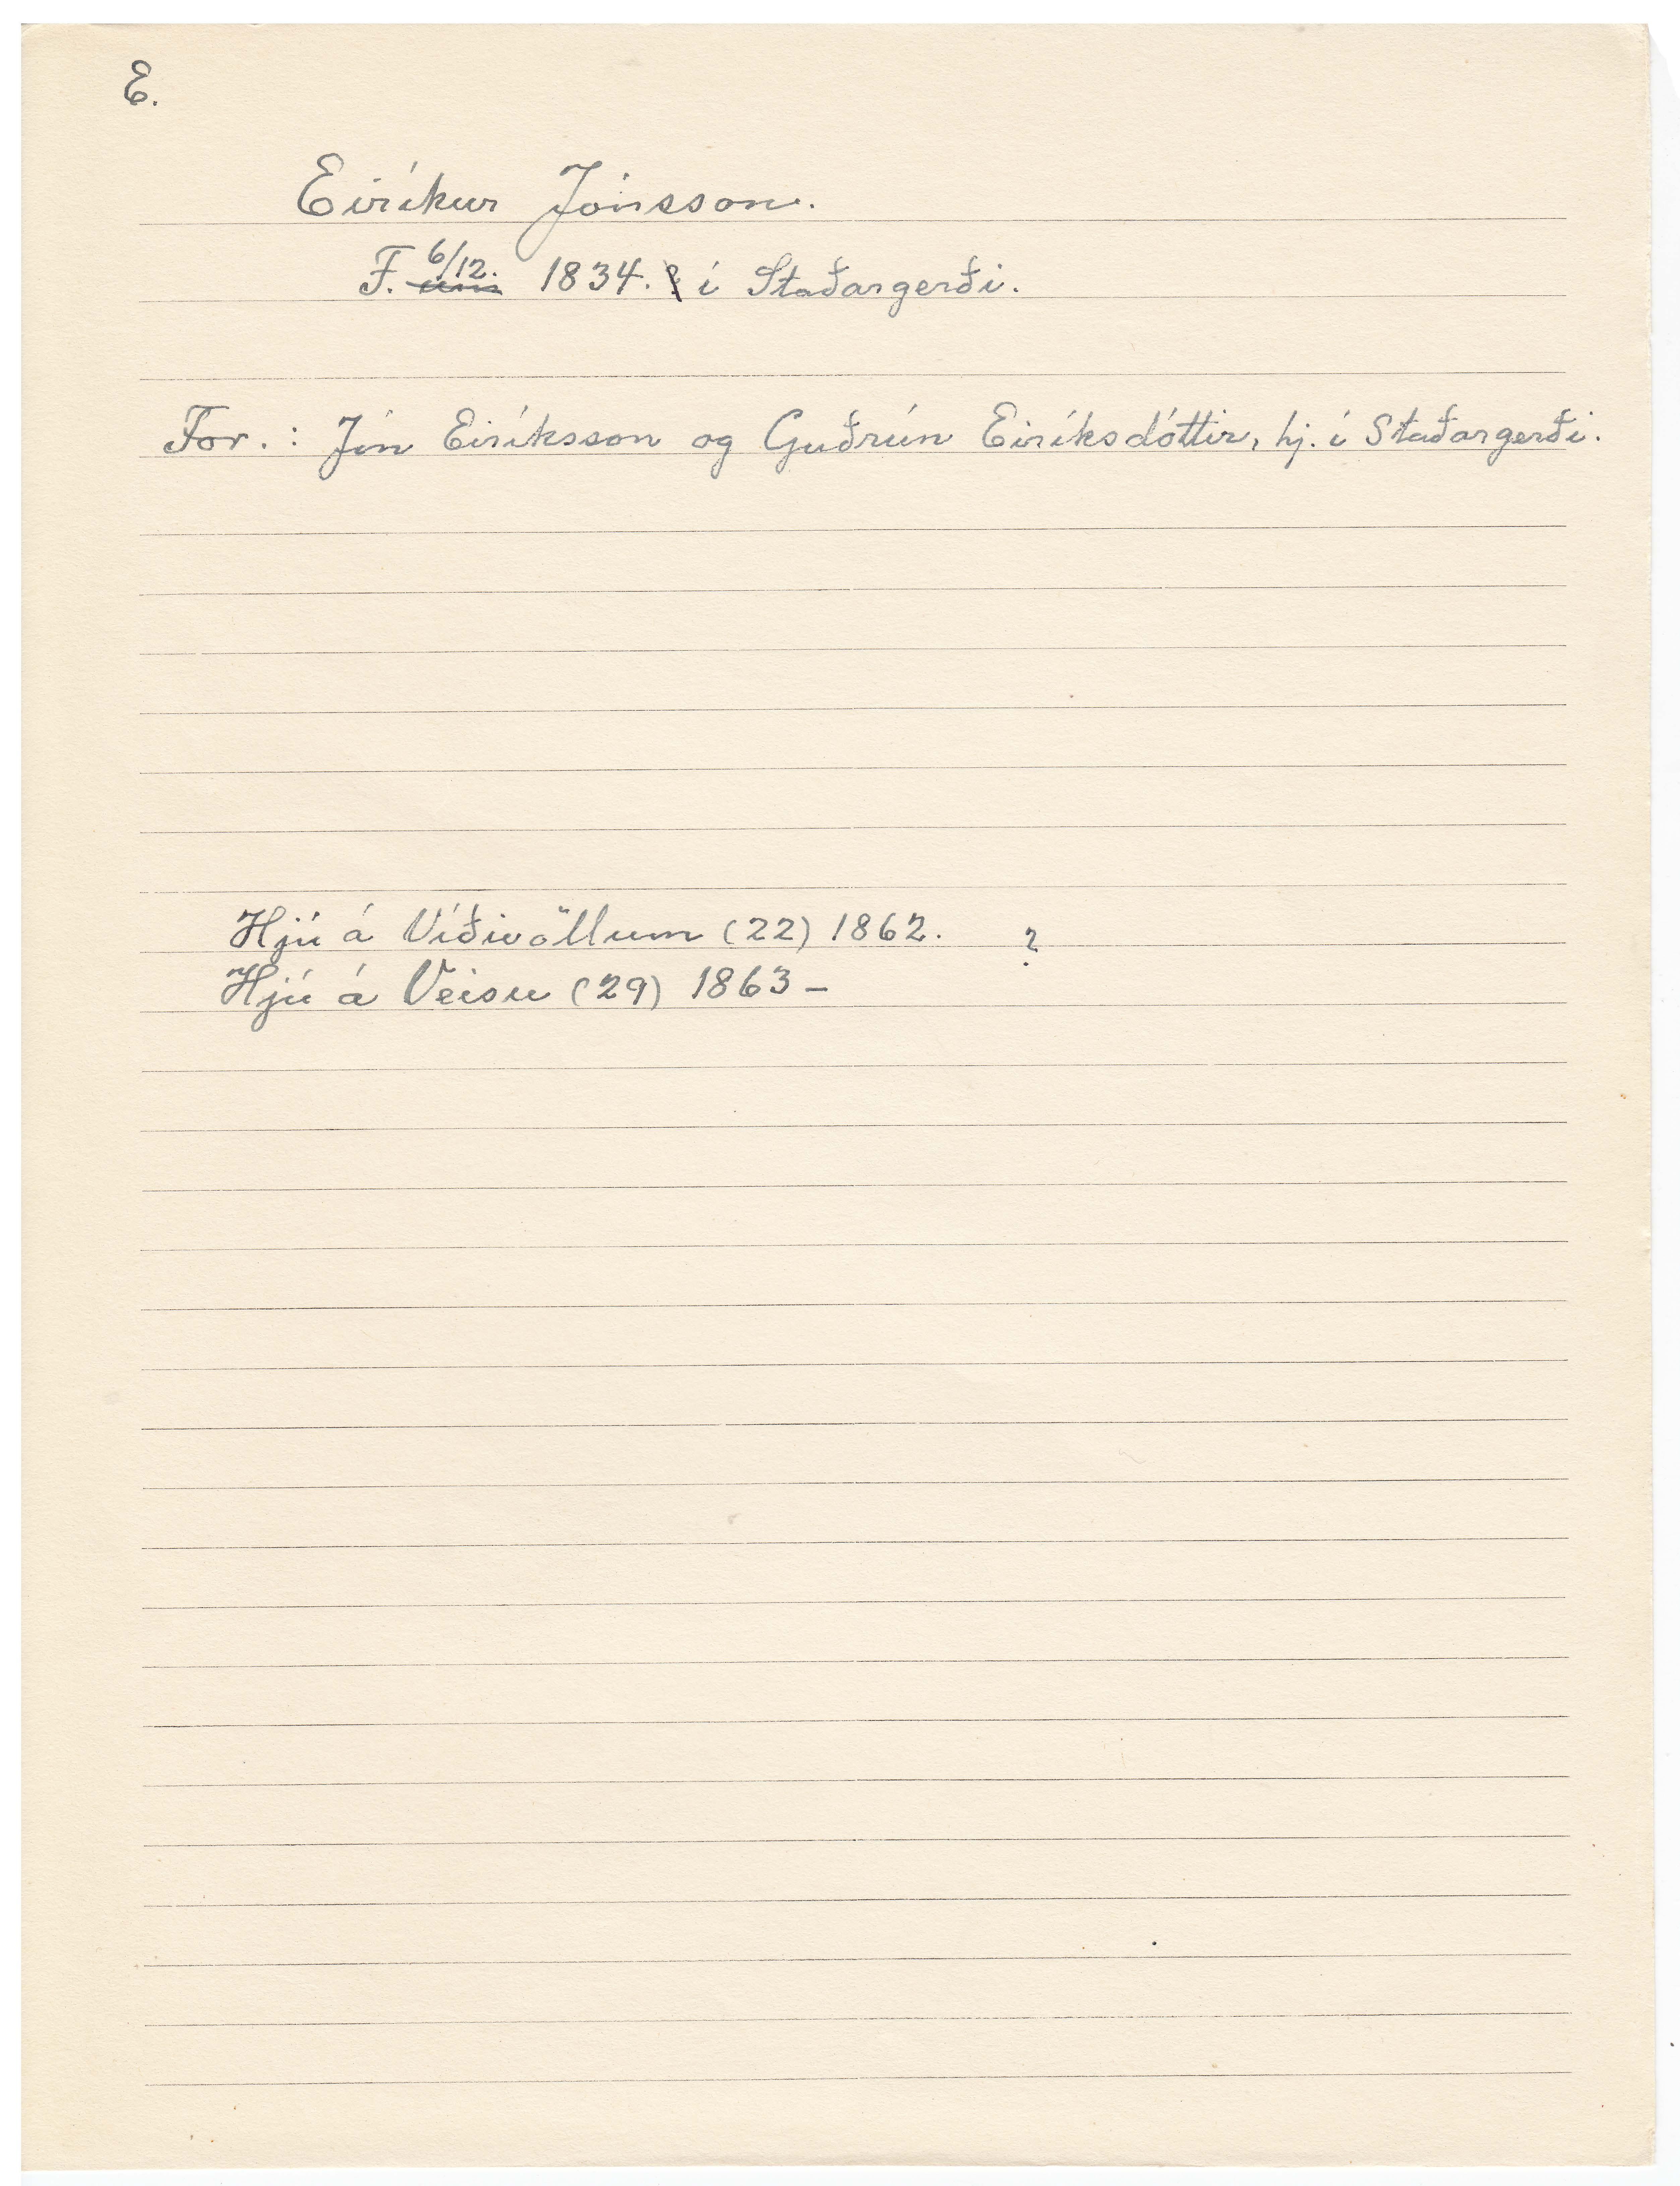 E.
Eiríkur Jónsson.
F. 6/12. 1834. í Staðargerði.
For.: Jón Eiríksson og Guðrún Eiríksdóttir, hj. í Staðargerði.
Hjú á Víðivöllum (22) 1862. ?
Hjú á Veisu (29) 1863 –